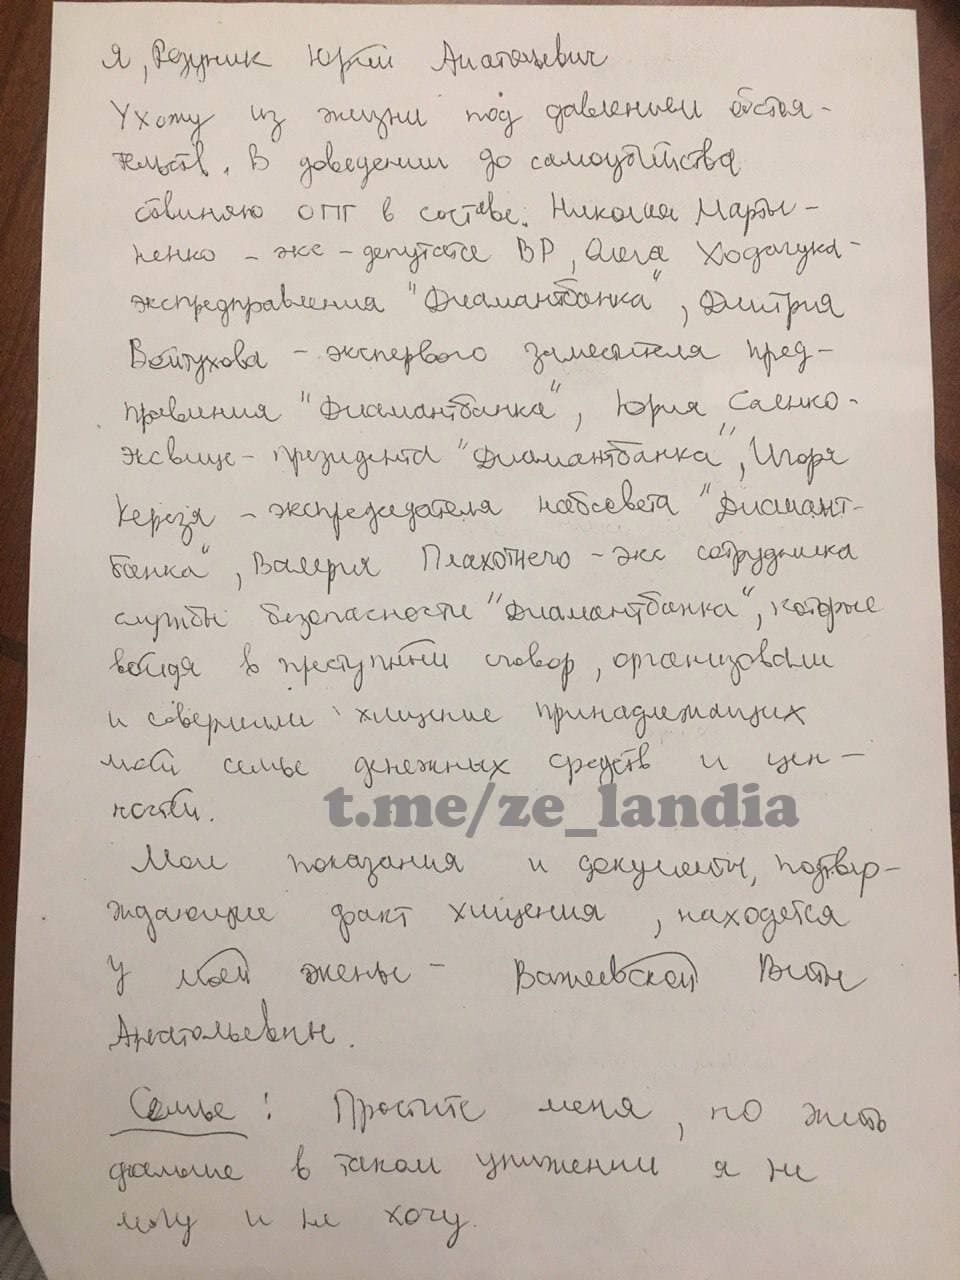 Я, Розумик Юрий Анатольевич
Ухожу из жизни под давлением обстоя-
тельств. В доведении до самоубийства
обвиняю ОПГ в составе: Николая Марты-
ненко - экс-депутата ВР, Олега Ходачука-
экспредправления "Диамантбанка", Дмитрия
Войтухова - экспервого заместителя пред-
правления "Диамантбанка", Юрия Саенко-
эксвице-президента "Диамантбанка", Игоря
Керезя - экспредседателя набсовета "Диамант-
банка", Валерия Плахотнего - экс сотрудника
службы безопасности "Диамантбанка", которые
войдя в преступный сговор, организовали
и совершили хищение принадлежащих
моей семье денежных средств и цен-
ностей.
t.me/ze_landia
Мои показания и документы, подтвер-
ждающие факт хищения, находятся
у моей жены - Виты
Анатольевны.
Семье! Простите меня, но жить
дальше в таком унижении я не
могу и не хочу.